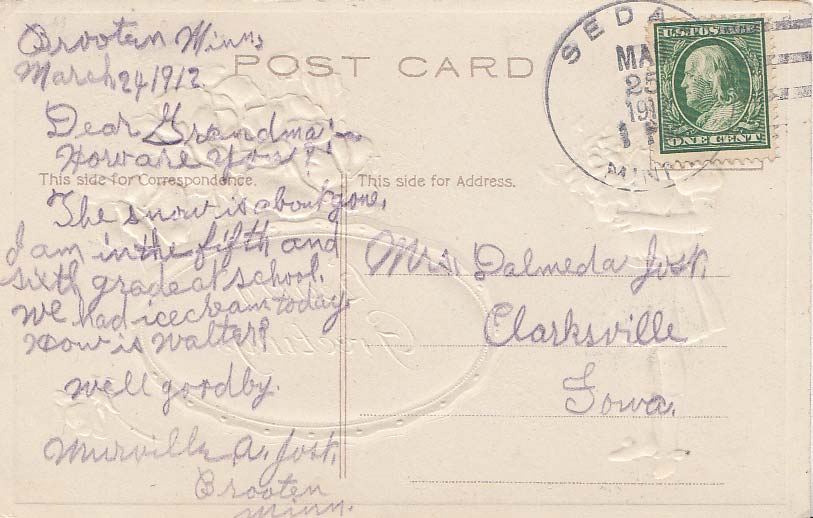 Brooten Minn.
March 24, 1912
POST CARD
Dear Grandma:—
How are you?
This side for Correspondence.
The snow is about gone.
I am in the fifth and
sixth grade at school.
We had icecream today.
How is Walter?
Well goodby.
A. Jost.
Brooten
Minn.
This side for Address.
Mrs. Dalmeda Jost.
Clarksville
Iowa.
SEDA
MA
25
191
MINN
U.S. POSTAGE
ONE CENT
Greeting